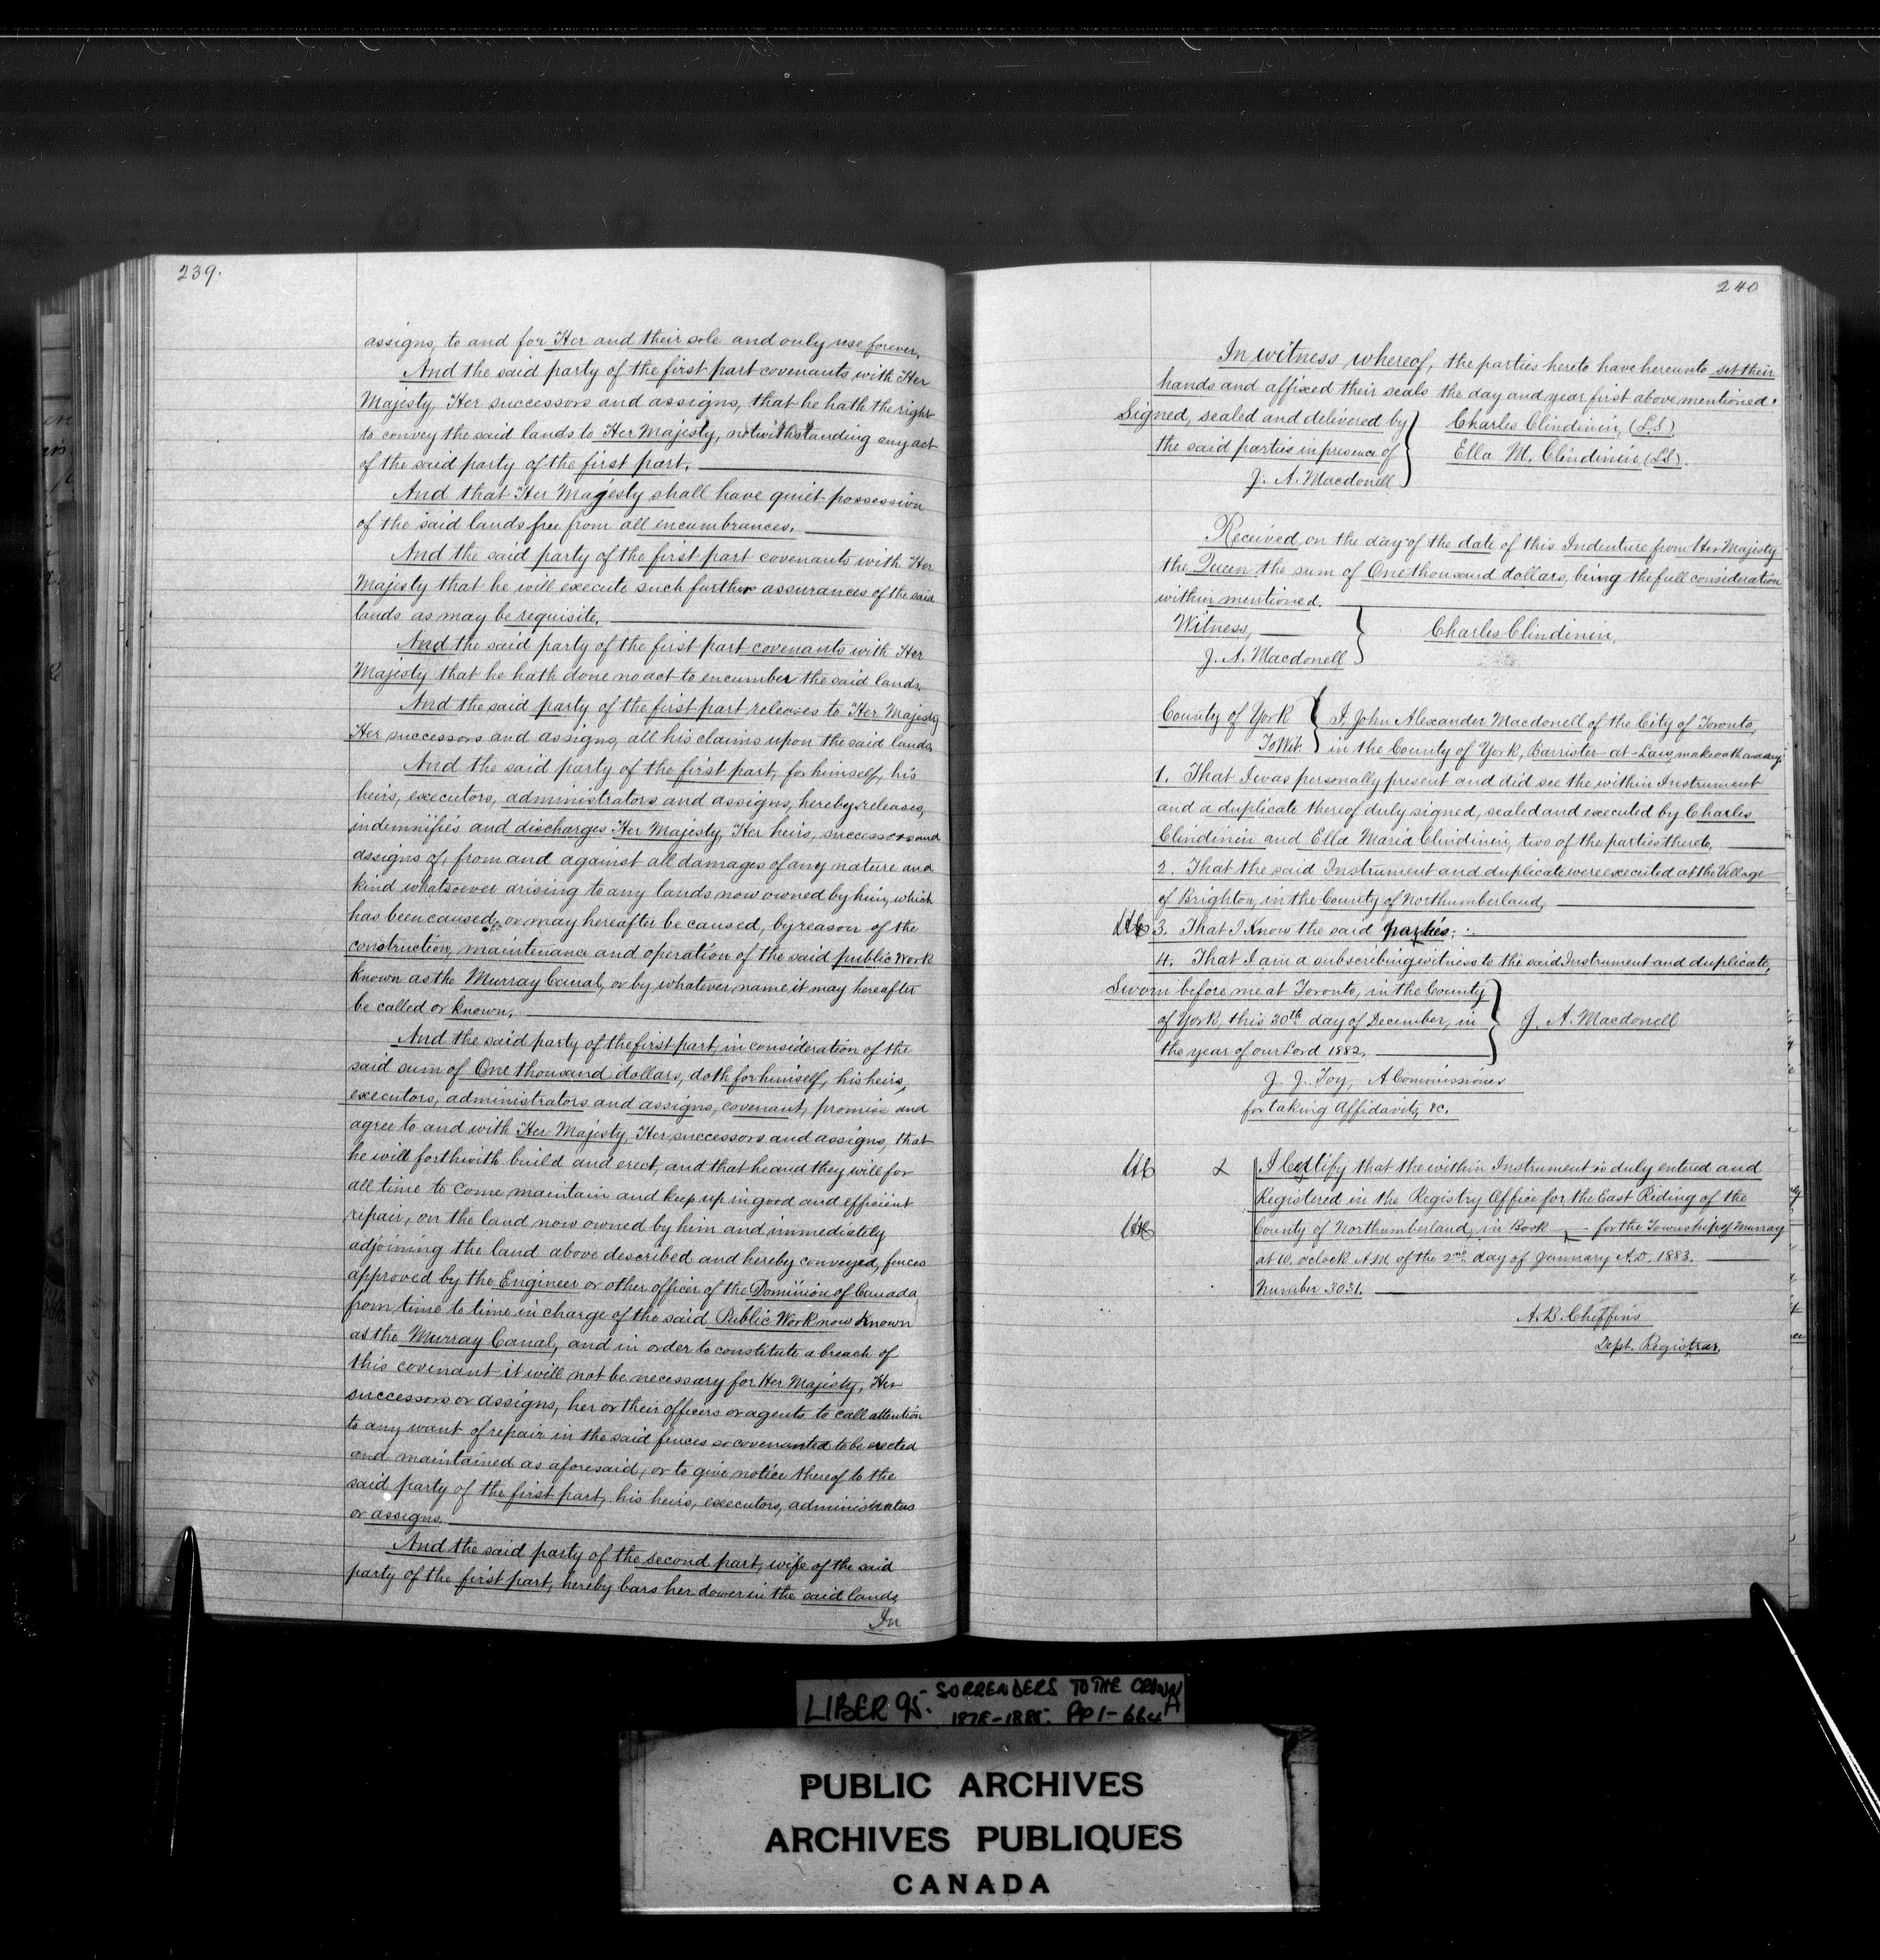 239.
assigns, to and for Her and their sole and only use forever.
And the said party of the first part covenants with Her
Majesty, Her successors and assigns, that he hath the right
to convey the said lands to Her Majesty, notwithstanding any act
of the said party of the first part.
And that Her Majesty shall have quiet possession
of the said lands free from all encumbrances.
And the said party of the first part covenants with Her
Majesty that he will execute such further assurances of the said
lands as may be requisite.
And the said party of the first part covenants with Her
Majesty that he hath done no act to encumber the said lands.
And the said party of the first part releases to Her Majesty
Her successors and assigns, all his claims upon the said lands
And the said party of the first part, for himself, his
heirs, executors, administrators and assigns, hereby releases,
indemnifies and discharges Her Majesty, Her heirs, successors and
assigns of, from and against all damages of any nature and
kind whatsoever arising to any lands now owned by him, which
has been caused, or may hereafter be caused, by reason of the
construction, maintenance and operation of the said public work
known as the Murray Canal, or by whatever name it may hereafter
be called or known.
And the said party of the first part, in consideration of the
said sum of One thousand dollars, doth for himself, his heirs,
executors, administrators and assigns, covenant, promise and
agree to and with Her Majesty, Her successors and assigns, that
he will forthwith build and erect, and that he and they will for
all time to come maintain and keep up in good and efficient
repair, on the land now owned by him and immediately
adjoining the land above described and hereby conveyed, fences
approved by the Engineer or other officer of the Dominion of Canada
from time to time in charge of the said Public Work now known
as the Murray Canal, and in order to constitute a breach of
this covenant it will not be necessary for Her Majesty, Her
successors or assigns, her or their officers or agents to call attention
to any want of repair in the said fences so covenanted to be erected
and maintained as aforesaid, or to give notice thereof to the
said party of the first part, his heirs, executors, administrators
or assigns.
And the said party of the second part, wife of the said
party of the first part, hereby bars her dower in the said lands
In
240
In witness whereof, the parties hereto have hereunto set their
hands and affixed their seals the day and year first above mentioned.
Signed, sealed and delivered by
the said parties in presence of
J. A. Macdonell
Charles Clindinin, (L.S)
Ella M. Clindinin (LS).
Received on the day of the date of this Indenture from Her Majesty
the Queen the sum of One thousand dollars, being the full consideration
within mentioned.
Witness,
J. A. Macdonell
Charles Clindinin,
County of York
To Wit.
I, John Alexander Macdonell of the City of Toronto,
in the County of York, Barrister-at-Law, make oath and say
1. That I was personally present and did see the within Instrument
and a duplicate thereof duly signed, sealed and executed by Charles
Clindinin and Ella Maria Clindinin, two of the parties thereto,
2. That the said Instrument and duplicate were executed at the Village
of Brighton, in the County of Northumberland,
3. That I Know the said parties.
4. That I am a subscribing witness to the said Instrument and duplicate,
Sworn before me at Toronto, in the County
of York, this 30th day of December, in
the year of our Lord 1882.
J. A. Macdonell
J. J. Foy, A Commissioner
for taking Affidavits, &c.
I Certify that the within Instrument is duly entered and
Registered in the Registry Office for the East Riding of the
County of Northumberland, in Book — for the Township of Murray
at 10. oclock A.M. of the 2nd day of January A.D. 1883.
Number 3031.
A. B. Cheffins
Dept. Registrar,
LIBER 95. SURRENDERS TO THE CROWN
1878-1885. PP 1-664
PUBLIC ARCHIVES
ARCHIVES PUBLIQUES
CANADA